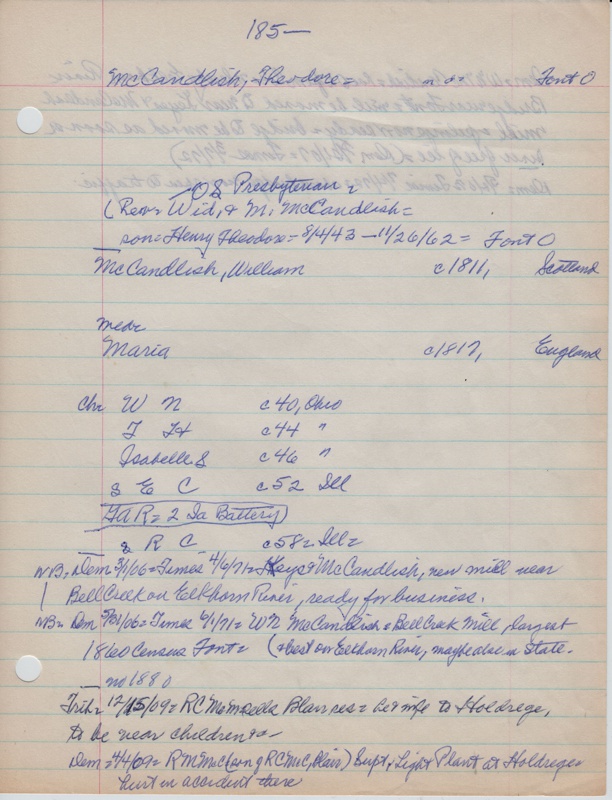 185—
McCandlish, Theodore = n d = Font O
OS Presbyterian =
(Rem = Wid, & M, McCandlish =
son = Henry Theodore = 8/4/43 — 11/26/62 = Font O
McCandlish, William c1811, Scotland
Maria c1817, England
Chr W N c40, Ohio
T H c44 "
Isabelle S c46 "
s E C c52 Ill
GAR = 2 Ia Battery
s R C c58 = Ill =
NB = Dem 3/1/06 = Times 4/6/71 = Keys & McCandlish, new mill near
Bell Creek on Elkhorn River, ready for business.
NB = Dem 5/31/06 = Times 6/1/71 = W N McCandlish = Bell Creek Mill, largest
1860 Census Font = (& best on Elkhorn River, maybe also in State.
no 1880
Trib = 12/15/09 = RC Blair res = & wife to Holdrege,
to be near children =
Dem = 4/4/09 = R M McC (son of RC McC, Blair) Supt, Light Plant at Holdrege =
hurt in accident there